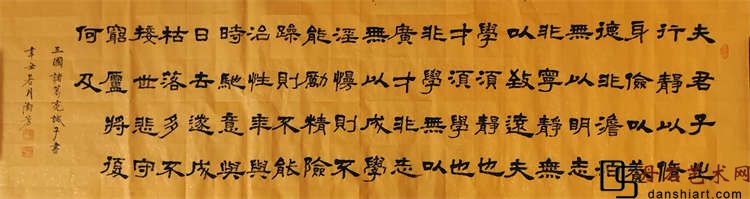 夫君子之
行靜以修
身儉以養
德非澹泊
無以明志
非寧靜無
以致遠夫
學須靜也
才須學也
非學無以
廣才非志
無以成學
淫慢則不
能勵精險
躁則不能
治性年與
時馳意與
日去遂成
枯落多不
接世悲守
窮廬將復
何及
三國諸葛亮誡子書
辛丑
艺术网
danshiart.com